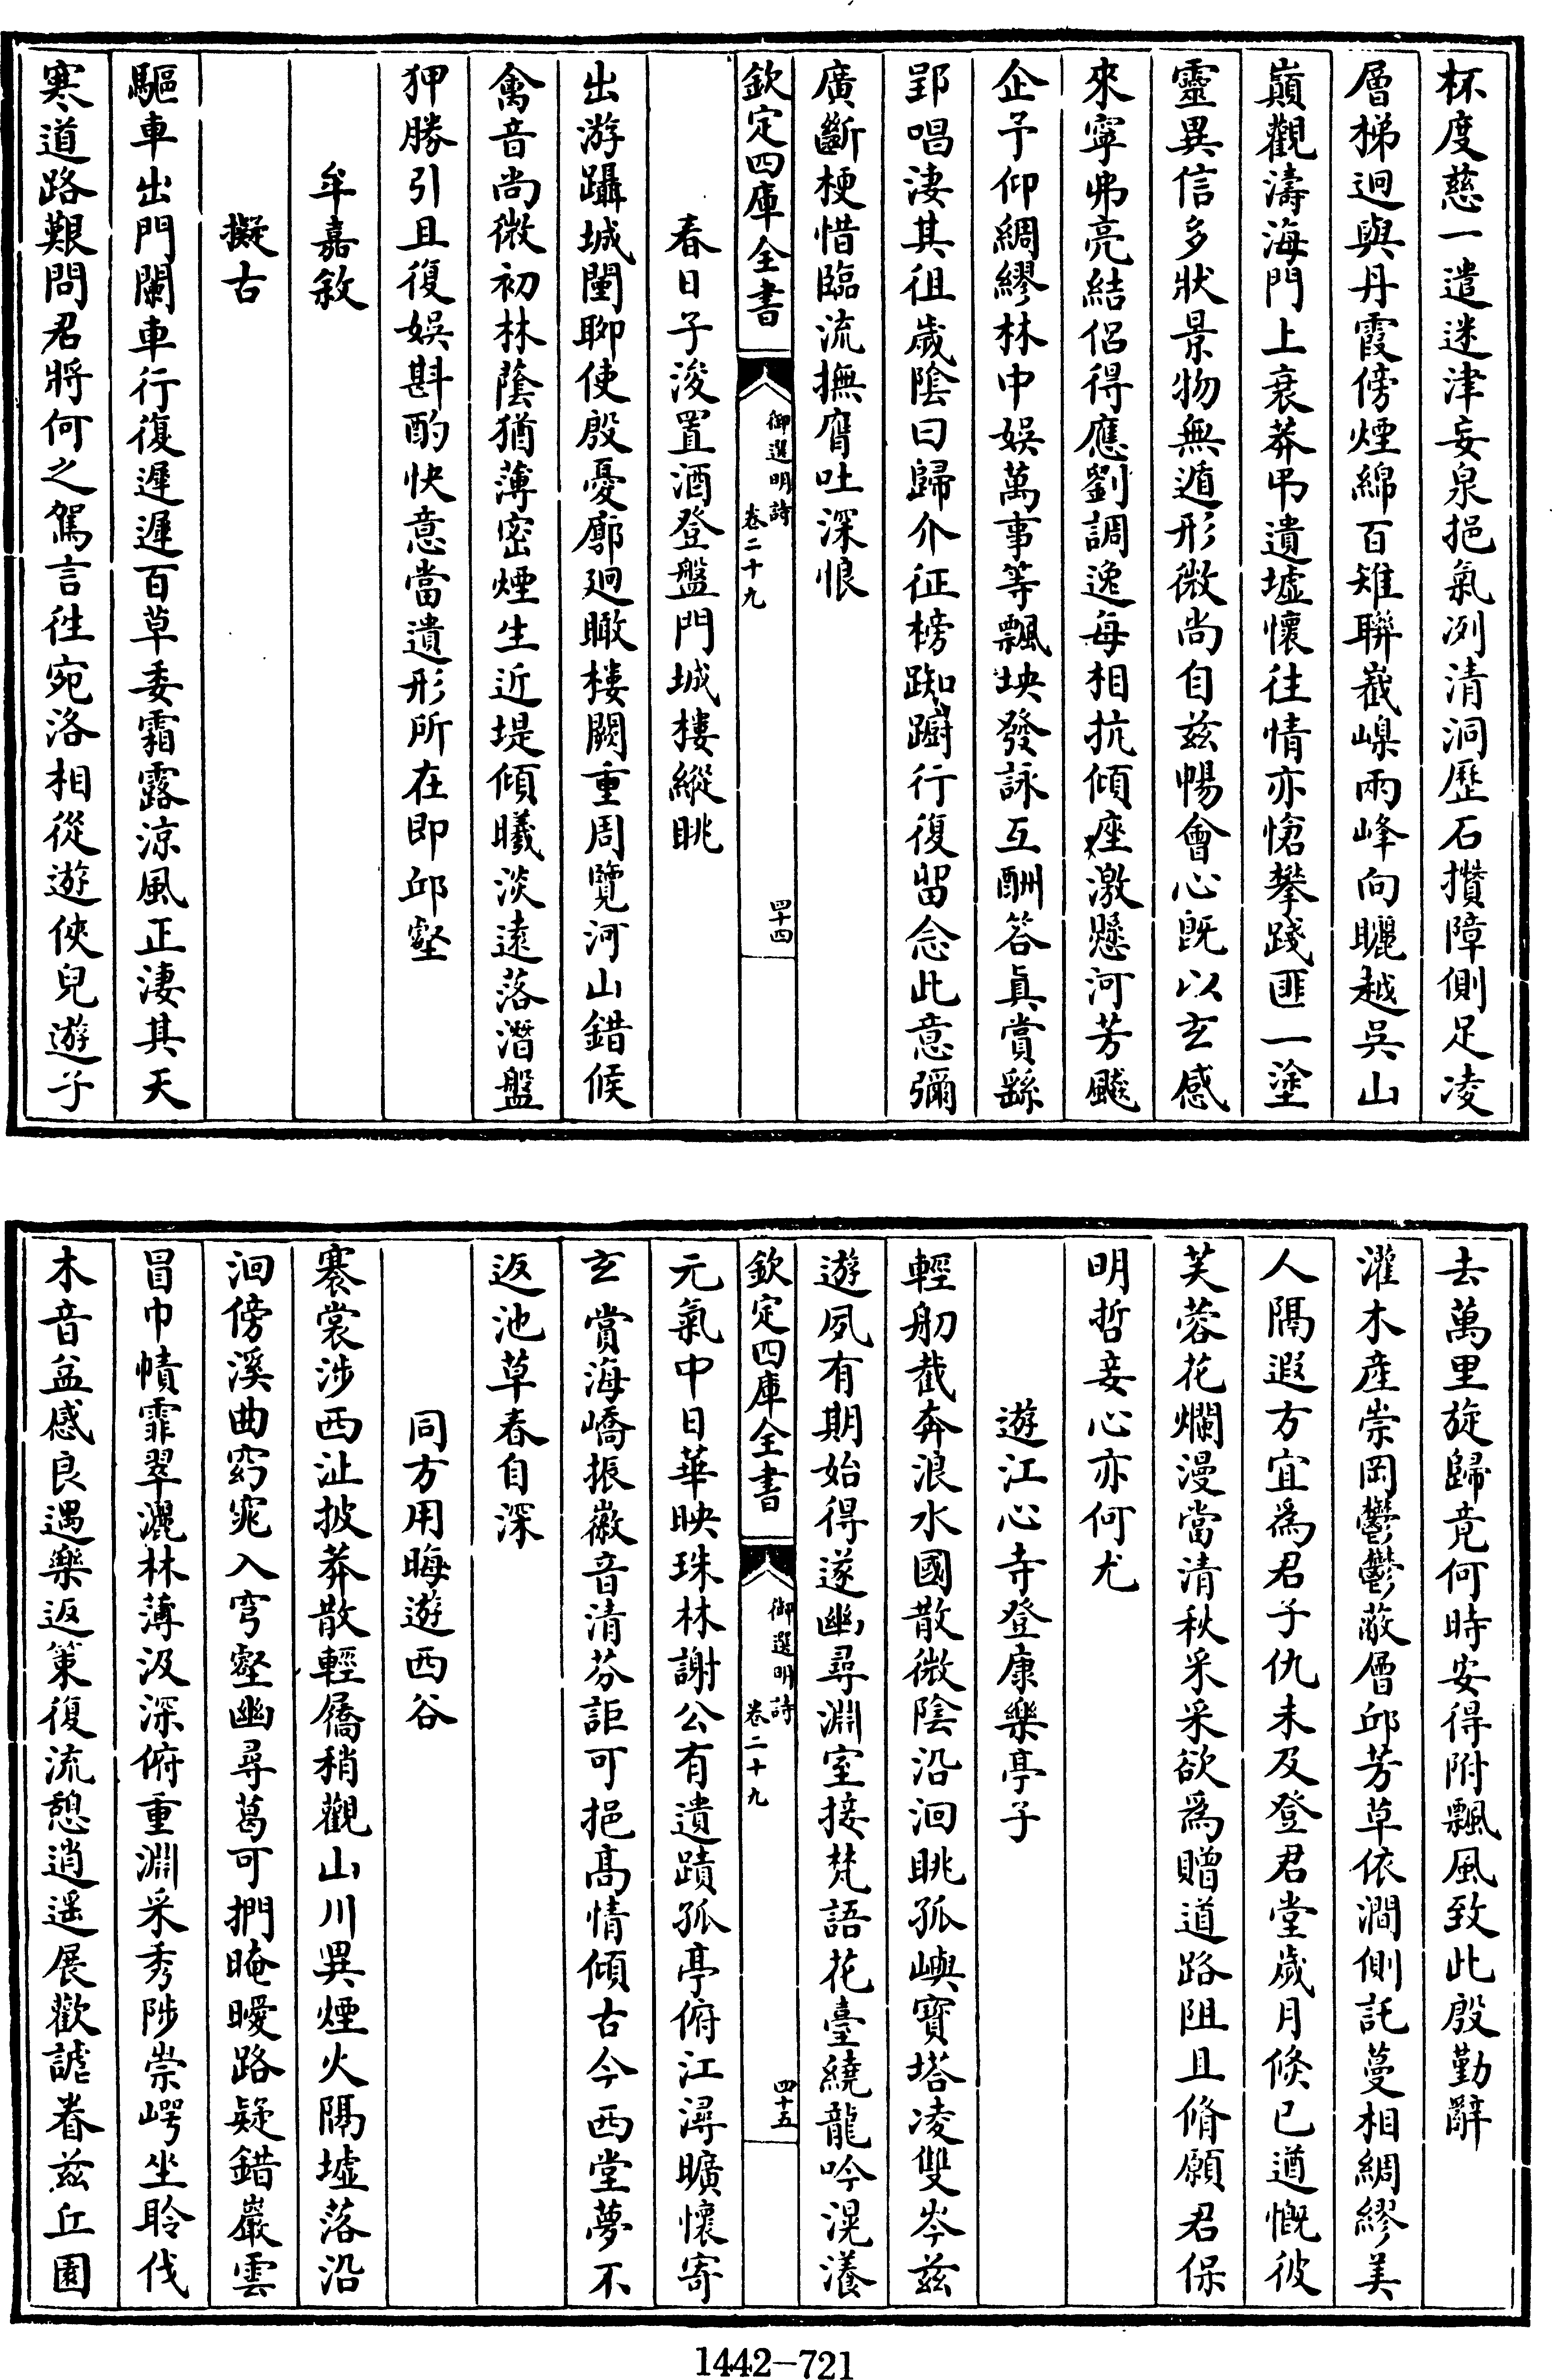 杯度慈一遣迷津妄泉挹氣冽清洞歷石攢障側足凌
層梯迥與丹霞傍煙綿百雉聯嶻嵲兩峰向曬越吳山
巔觀濤海門上衰莽弔遺墟懷往情亦愴攀踐匪一塗
靈異信多狀景物無遁形微尚自兹暢會心既以玄感
來寧弗亮結侶得應劉調逸每相抗傾座激懸河芳飈
企予仰綢繆林中娯萬事等飄坱發詠互酬答真賞繇
郢唱淒其徂歲陰曰歸介征榜踟躕行復留念此意彌
廣斷梗惜臨流撫膺吐深恨
欽定四庫全書
御選明詩
卷二十九
四十四
春日子浚置酒登盤門城樓縱眺
出游躡城闉聊使殷憂廓迴瞰樓闕重周覽河山錯候
禽音尚微初林蔭猶薄密煙生近堤傾曦淡遠落潛盤
狎勝引且復娯斟酌快意當遺形所在即邱壑
牟嘉敘
擬古
驅車出門闌車行復遲遲百草委霜露涼風正淒其天
寒道路艱問君將何之駕言徃宛洛相從遊俠兒遊子
去萬里旋歸竟何時安得附飄風致此殷勤辭
灌木産崇岡鬱鬱蔽層邱芳草依澗側託蔓相綢繆美
人隔遐方宜爲君子仇未及登君堂歲月倐已遒慨彼
芙蓉花爛漫當清秋采采欲爲贈道路阻且脩願君保
明哲妾心亦何尤
遊江心寺登康樂亭子
輕舠截奔浪水國散微陰沿洄眺孤嶼寶塔凌雙岑兹
遊夙有期始得遂幽尋淵室接梵語花臺繞龍吟滉瀁
欽定四庫全書
御選明詩
卷二十九
四十五
元氣中日華映珠林謝公有遺蹟孤亭俯江潯曠懷寄
玄賞海嶠振徽音清芬詎可挹高情傾古今西堂夢不
返池草春自深
同方用晦遊西谷
褰裳涉西沚披莽散輕屩稍觀山川異煙火隔墟落沿
洄傍溪曲窈窕入穹壑幽尋葛可捫晻曖路疑錯巖雲
冒巾幘霏翠灑林薄汲深俯重淵采秀陟崇崿坐聆伐
木音益感良遇樂返策復流憩逍遥展歡謔眷兹丘園
1442-721